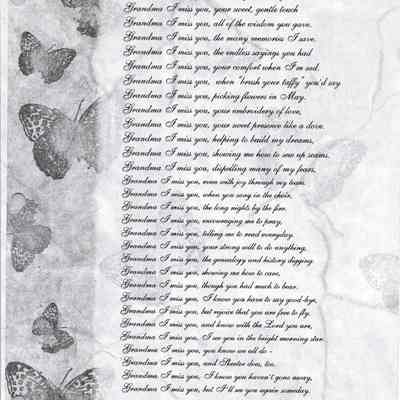 Grandma I miss you, your sweet, gentle touch
Grandma I miss you, all of the wisdom you gave.
Grandma I miss you, the many memories I save.
Grandma I miss you, the endless sayings you had
Grandma I miss you, your comfort when I'm sad.
Grandma I miss you, when "brush your taffy" you'd say
Grandma I miss you, picking flowers in May.
Grandma I miss you, your embroidery of love,
Grandma I miss you, your sweet presence like a dove.
Grandma I miss you, helping to build my dreams,
Grandma I miss you, showing me how to sew up seams.
Grandma I miss you, dispelling many of my fears,
Grandma I miss you, even with joy through my tears.
Grandma I miss you, when you sang in the choir,
Grandma I miss you, the long nights by the fire.
Grandma I miss you, encouraging me to pray,
Grandma I miss you, telling me to read everyday.
Grandma I miss you, your strong will to do anything,
Grandma I miss you, the genealogy and history digging.
Grandma I miss you, showing me how to care,
Grandma I miss you, though you had much to bear.
Grandma I miss you, I know you have to say good-bye,
Grandma I miss you, but rejoice that you are free to fly.
Grandma I miss you, and know with the Lord you are,
Grandma I miss you, I see you in the bright morning star.
Grandma I miss you, you know we all do -
Grandma I miss you, and Skeeter does, too.
Grandma I miss you, I know you haven't gone away,
Grandma I miss you, but I'll see you again someday.